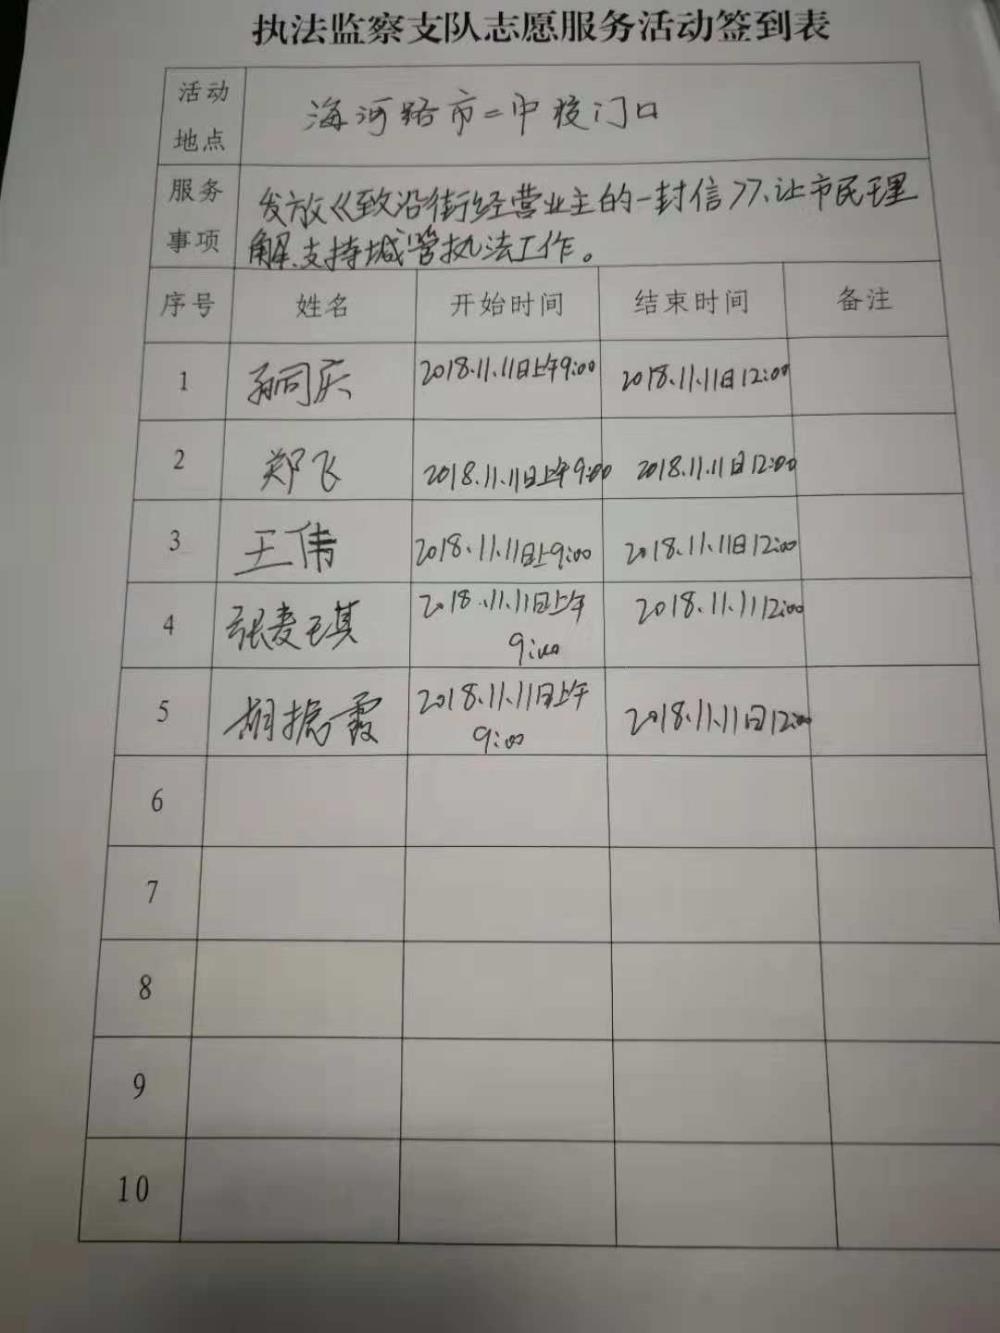 执法监察支队志愿服务活动签到表
活动地点 海河路市二中校门口
服务事项 发放《致沿街经营业主的一封信》、让市民理
解、支持城管执法工作。
序号 姓名 开始时间 结束时间 备注
1 孙同庆 2018.11.11日上午9:00 2018.11.11日12:00
2 郑飞 2018.11.11日上午9:00 2018.11.11日12:00
3 王伟 2018.11.11日上9:00 2018.11.11日12:00
4 张麦琪 2018.11.11日上午 2018.11.11 12:00
9:00
5 胡振霞 2018.11.11日上午 2018.11.11日12:00
9:00
6
7
8
9
10